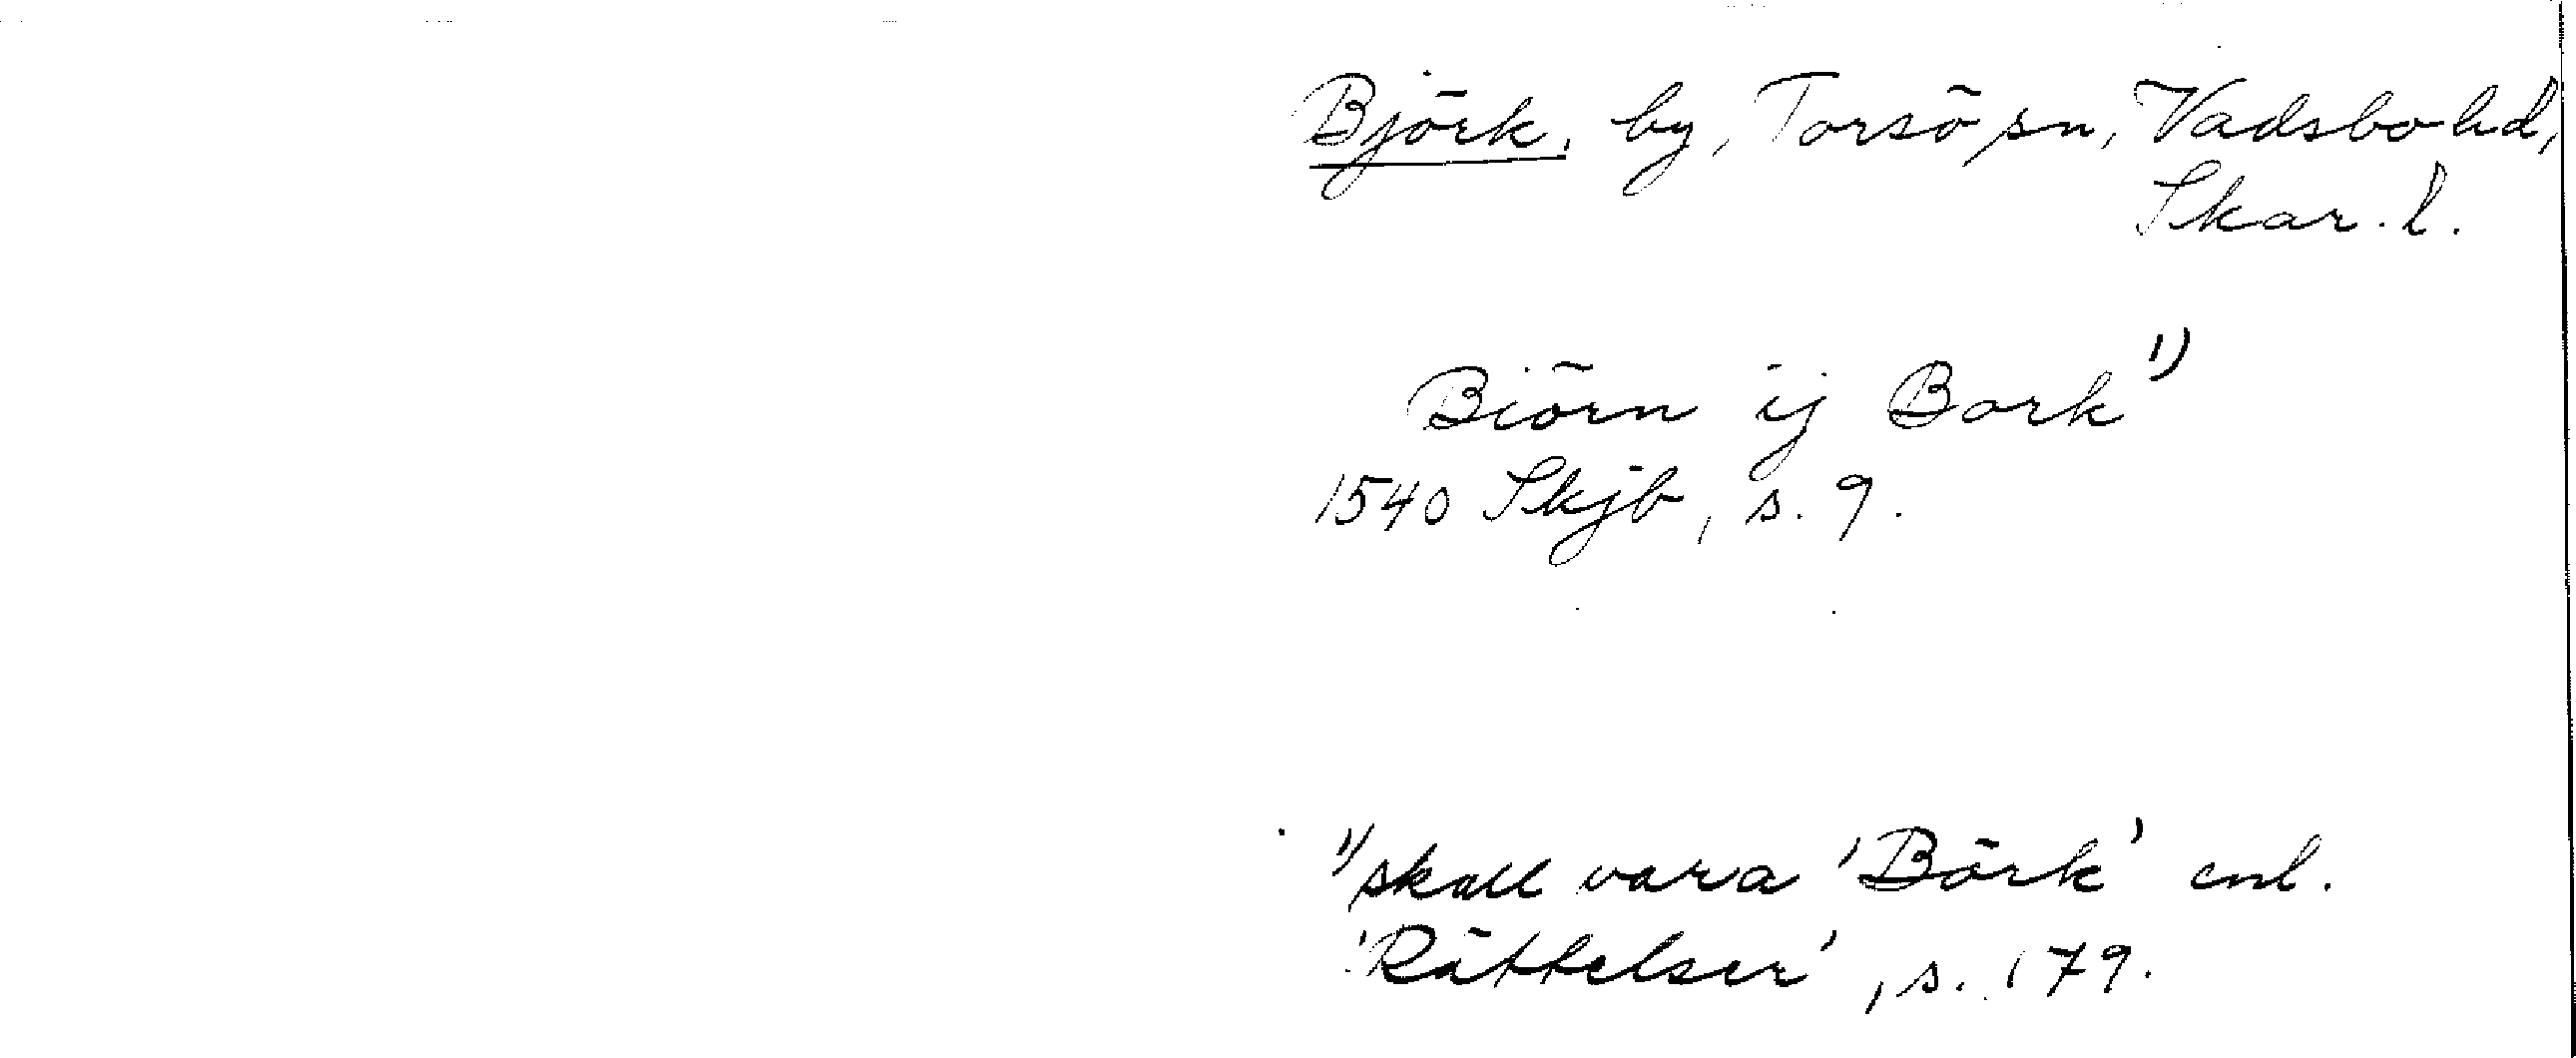 Björk, by, Torsö sn, Vadsbo hd,
Skar. l.
Biörn ij Bork 1)
1540 Skjb, s. 9.
1) skall vara 'Börk' enl.
'Rättelser', s. 179.